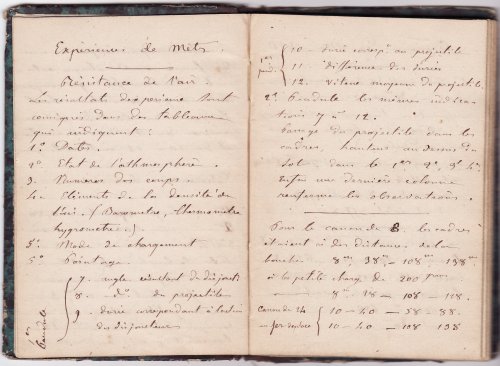 Experiences de Metz.
Résistance de l'air.
Les résultats d'experience sont
consignés dans des tableaux
qui indiquent :
1º Dates.
2º Etat de l'athmosphere.
3. Numeros des coups.
4. Eléments de la densité de
l'air. (Barometre, Thermometre
hygrometre.)
5º Mode de chargement
5º Pointage.
1er Pendule
7. angle résultant de disjonct
8. dº du projectile
9. durée correspondant à l'action
des disjoncteurs
1er pend.
10 - durée corresp au projectile
11. différence des durées
12. vitesse moyenne du projectile.
2º Pendule les mêmes indica
tions 7 à 12.
Passage du projectile dans les
cadres, hauteur au dessus du
sol dans le 1er 2e 3e 4e
Enfin une dernière colonne
renferme les observations.
Pour le canon de 8. les cadres
étaient à des distances de la
bouche 8m 38m - 108m 138m
à la petite charge de 200 gram
8m - 38 - 108 - 128.
Canon de 24
10 - 40 - 58 - 88.
10 - 40 - 108 138